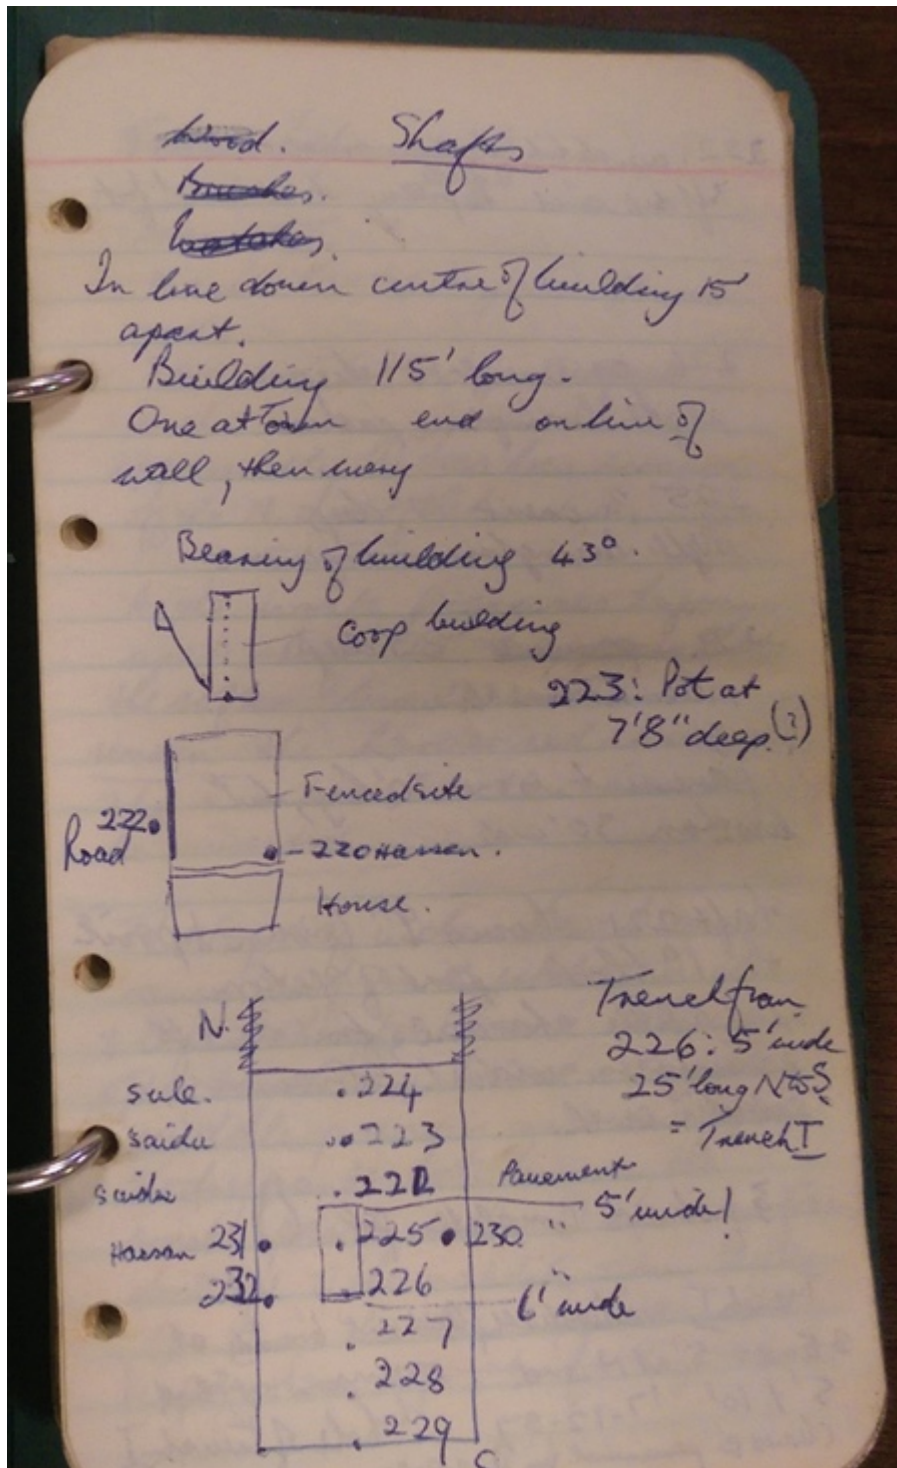 Wood. Shafts
Brushes.
In line down centre of building 15'
apart.
Building 115' long.
One at Town end on line of
wall, then every
Bearing of building 43°.
Coop building
223: Pot at
7'8" deep. (?)
Fenced site
222
Road
220 Hassan.
House.
Trench from
226: 5' wide
25' long N to S
= Trench I
N.
Sule. .224
Saidu .223
Saidu .221
Pavement
5' wide!
Hassan 231 .225 230 "
232 .226
6' wide
.227
.228
.229
S